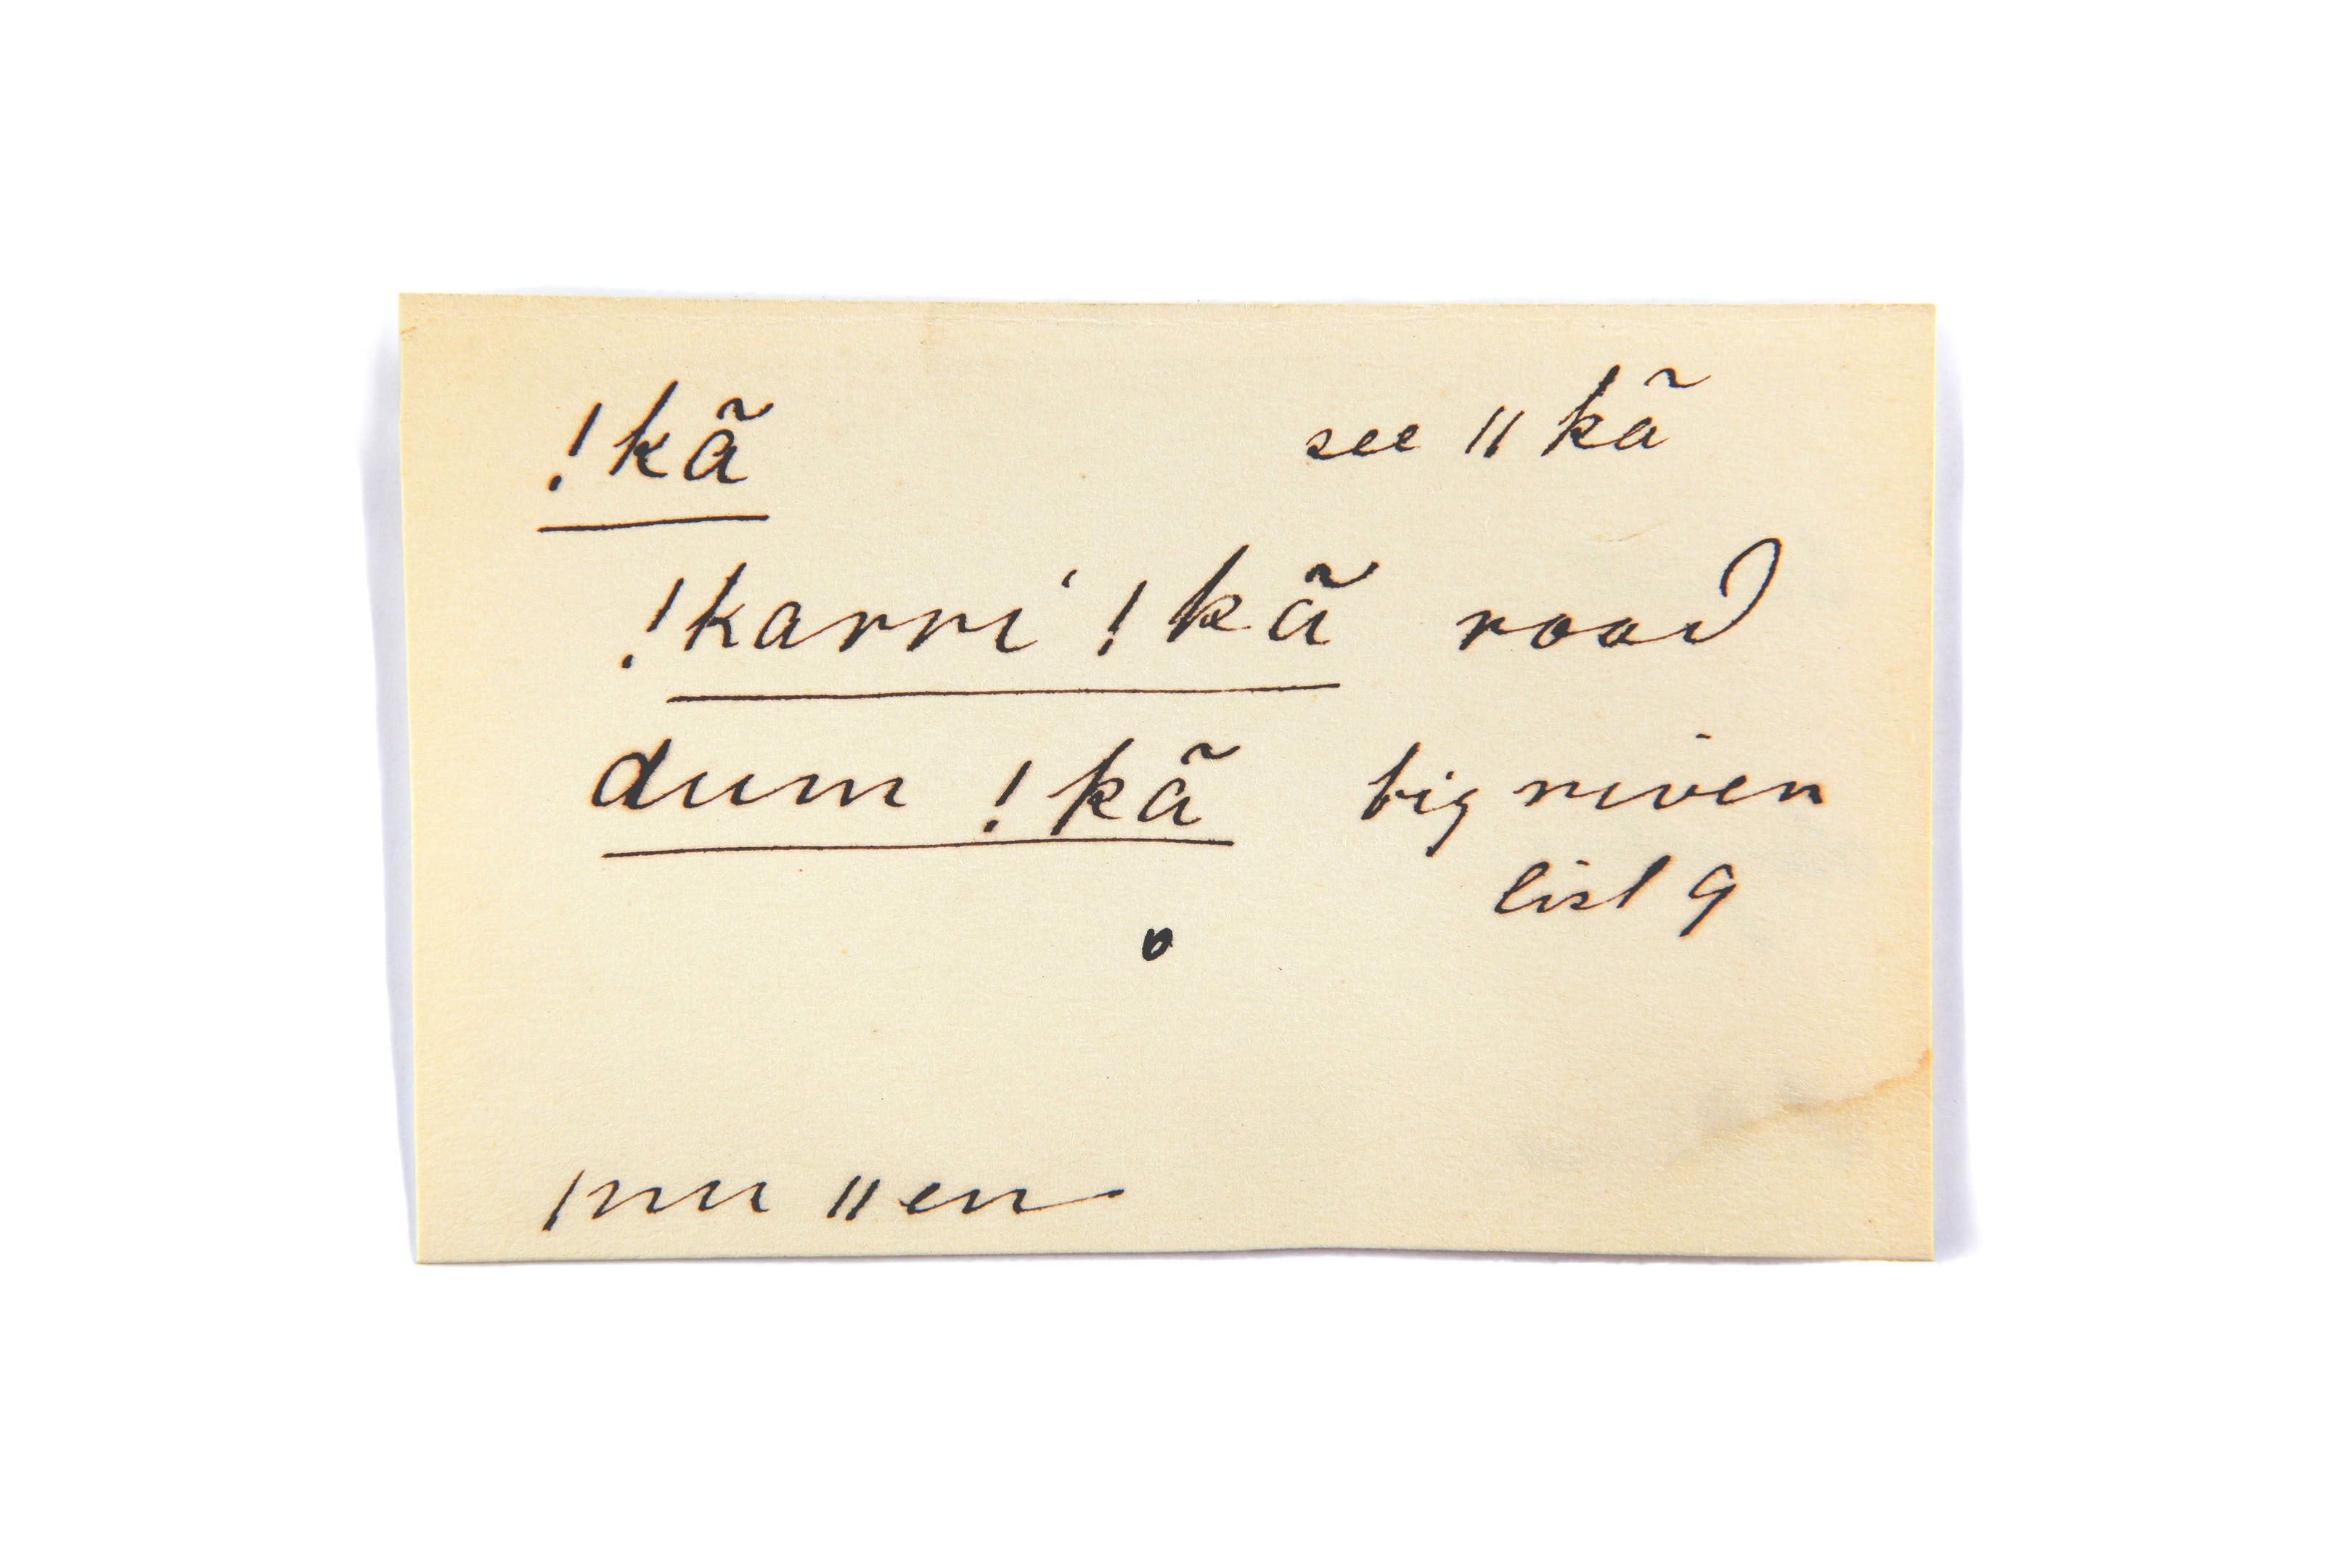 !kã see ǁkã
!karri' !kã road
dum !kã big river
list 9
ǀnu ǁen